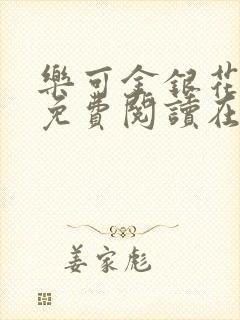 樂可金銀花
免費閱讀在
姜家彪